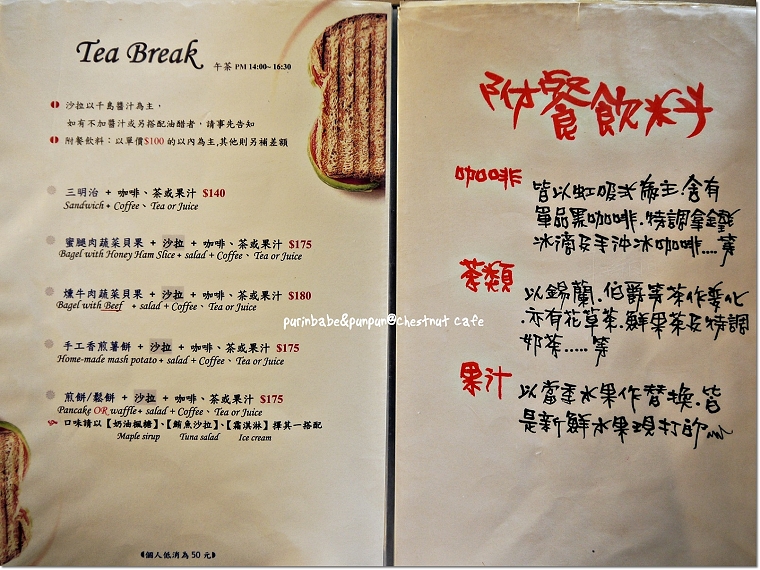 Tea Break 午茶 PM 14:00~ 16:30
沙拉以千島醬汁為主，
如有不加醬汁或另搭配油醋者，請事先告知
附餐飲料：以單價$100 的以內為主,其他則另補差額
三明治 + 咖啡、茶或果汁 $140
Sandwich + Coffee、Tea or Juice
蜜腿肉蔬菜貝果 + 沙拉 + 咖啡、茶或果汁 $175
Bagel with Honey Ham Slice + salad + Coffee、Tea or Juice
燻牛肉蔬菜貝果 + 沙拉 + 咖啡、茶或果汁 $180
Bagel with Beef + salad + Coffee、Tea or Juice
手工香煎薯餅 + 沙拉 + 咖啡、茶或果汁 $175
Home-made mash potato + salad + Coffee、Tea or Juice
煎餅/鬆餅 + 沙拉 + 咖啡、茶或果汁 $175
Pancake OR waffle + salad + Coffee、Tea or Juice
口味請以【奶油楓糖】、【鮪魚沙拉】、【霜淇淋】擇其一搭配
Maple sirup Tuna salad Ice cream
個人低消為 50 元
purinbabe&punpun@chestnut cafe
附餐飲料
咖啡
皆以虹吸式為主.含有
單品黑咖啡.特調拿鐵
冰滴及手沖冰咖啡....等
茶類
以錫蘭.伯爵菁茶作變化
.亦有花草茶.鮮果茶及特調
奶茶.....等
果汁
以當季水果作替換.皆
是新鮮水果現打的